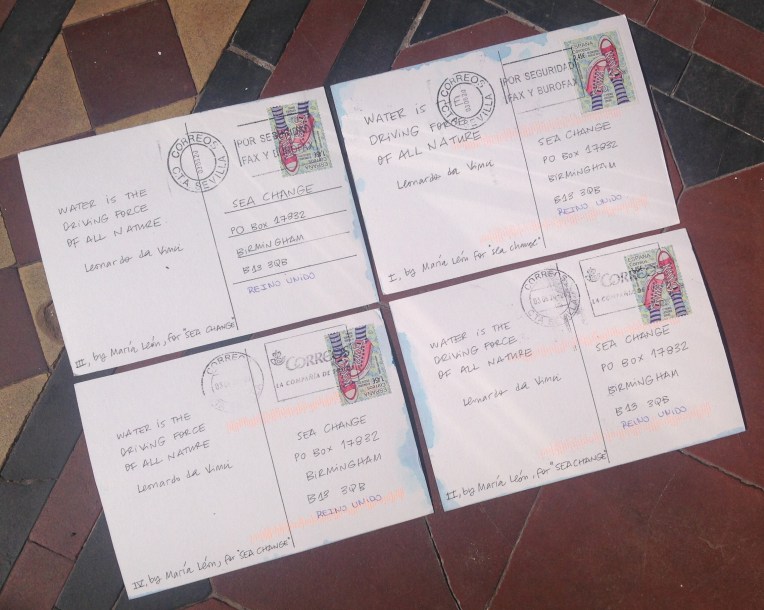 WATER IS THE
DRIVING FORCE
OF ALL NATURE
Leonardo da Vinci
CORREOS
CTA SEVILLA
POR SEGURIDAD
FAX Y BUROFAX
ESPAÑA
SEA CHANGE
PO BOX 17832
BIRMINGHAM
B13 3QB
REINO UNIDO
III, by María León, for "SEA CHANGE"
WATER IS
DRIVING FORCE
OF ALL NATURE
Leonardo da Vinci
CORREOS
SEVILLA
POR SEGURIDAD
FAX Y BUROFAX
ESPAÑA
SEA CHANGE
PO BOX 17832
BIRMINGHAM
B13 3QB
REINO UNIDO
I, by María León for "sea change"
WATER IS THE
DRIVING FORCE
OF ALL NATURE
Leonardo da Vinci
CORREO
CORREO
LA COMPAÑÍA DE
ESPAÑA
SEA CHANGE
PO BOX 17832
BIRMINGHAM
B13 3QB
REINO UNIDO
IV, by María León, for "SEA CHANGE"
WATER IS THE
DRIVING FORCE
OF ALL NATURE
Leonardo da Vinci
CORREOS
CTA
CORREO
LA COMPAÑÍA DE
ESPAÑA
SEA CHANGE
PO BOX 17832
BIRMINGHAM
B13 3QB
REINO UNIDO
II, by María León, for "SEA CHANGE"